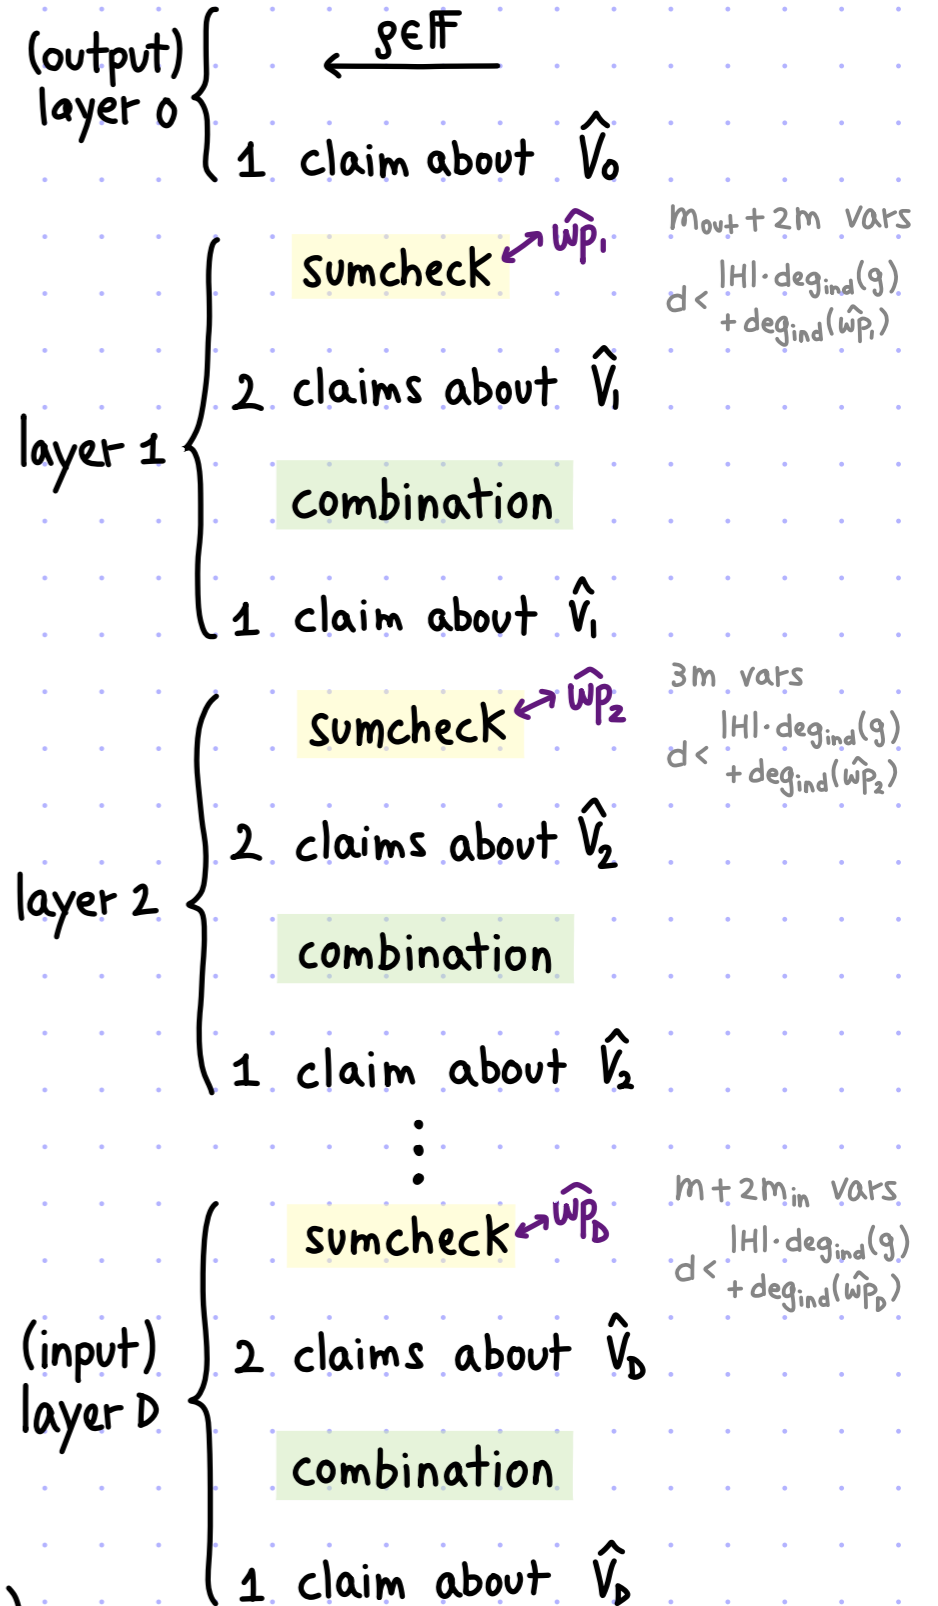 (output)
layer 0
ρ∈𝔽
1 claim about V̂₀
sumcheck ŵp₁
m_out + 2m vars
d < |H|·deg_ind(g)
+ deg_ind(ŵp₁)
2 claims about V̂₁
layer 1
combination
1 claim about V̂₁
sumcheck ŵp₂
3m vars
d < |H|·deg_ind(g)
+ deg_ind(ŵp₂)
2 claims about V̂₂
layer 2
combination
1 claim about V̂₂
⋮
sumcheck ŵp_D
m + 2m_in vars
d < |H|·deg_ind(g)
+ deg_ind(ŵp_D)
2 claims about V̂_D
(input)
layer D
combination
1 claim about V̂_D
)